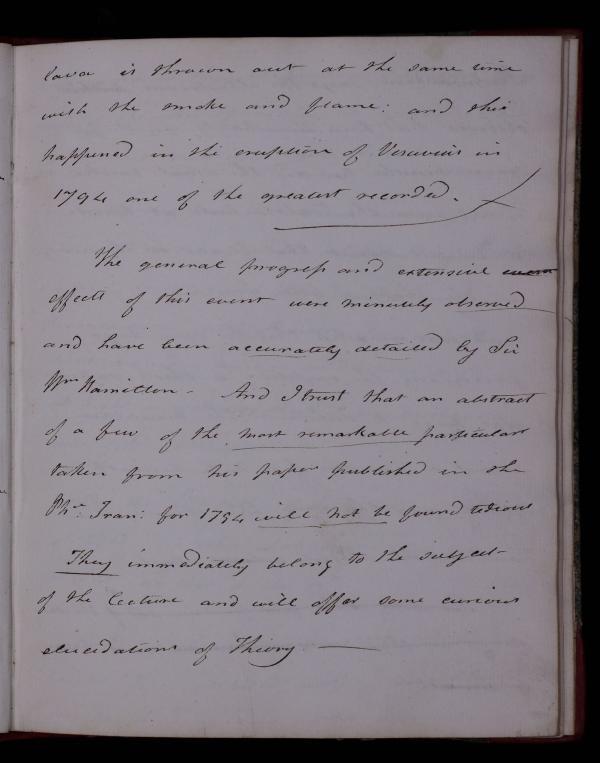 lava is thrown out at the same time
with the smoke and flame: and this
happened in the eruption of Vesuvius in
1794 one of the greatest recorded.
The general progress and extensive
effects of this event were minutely observed
and have been accurately detailed by Sir
Wm Hamilton - And I trust that an abstract
of a few of the most remarkable particulars
taken from his paper published in the
Phi. Tran: for 1794 will not be found tedious
They immediately belong to the subject
of the lecture and will offer some curious
elucidations of Theory —